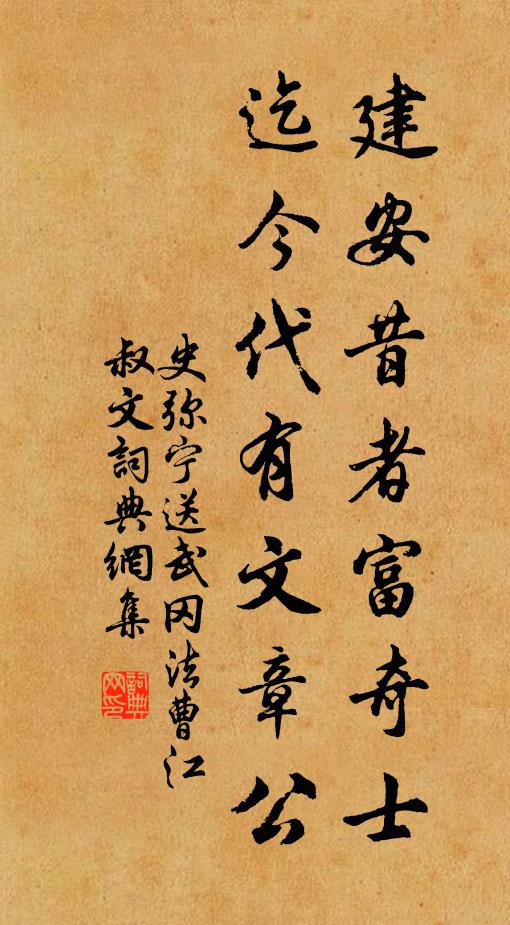 建安昔者富奇士
迄今代有文章公
史弥宁送武冈法曹江
叔文詞典網集
詞典网印